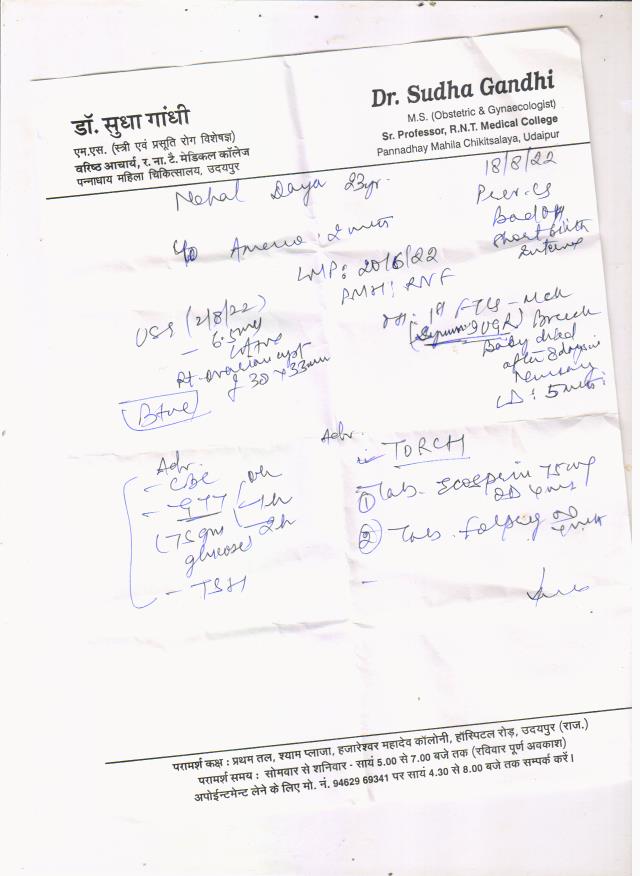 डॉ. सुधा गांधी
एम.एस. (स्त्री एवं प्रसूति रोग विशेषज्ञ)
वरिष्ठ आचार्य, र. ना. टै. मेडिकल कॉलेज
पन्नाधाय महिला चिकित्सालय, उदयपुर
Dr. Sudha Gandhi
M.S. (Obstetric & Gynaecologist)
Sr. Professor, R.N.T. Medical College
Pannadhay Mahila Chikitsalaya, Udaipur
18/8/22
Nehal Daya 23yr.
Prev. CS
Bad OH
short birth
C/o Ameno: 2 mths
LMP: 20/6/22
PMH: RNF
USG (2/8/22)
- 6.5 wks
Rt. ovarian cyst
30 x 33mm
B+ve
1st FTCS - Mch
IUGR) Breech
Baby died
after 8 days in
Nursery
LD: 5 mths
Adv.
- CBC
- GTT
0h
1h
2h
(75 gm
glucose)
- TSH
Adv.
TORCH
① Tab. Ecosprin 75mg
OD
② Tab. OD
परामर्श कक्ष : प्रथम तल, श्याम प्लाजा, हजारेश्वर महादेव कॉलोनी, हॉस्पिटल रोड़, उदयपुर (राज.)
परामर्श समय : सोमवार से शनिवार - सायं 5.00 से 7.00 बजे तक (रविवार पूर्ण अवकाश)
अपोईन्टमेन्ट लेने के लिए मो. नं. 94629 69341 पर सायं 4.30 से 8.00 बजे तक सम्पर्क करें।